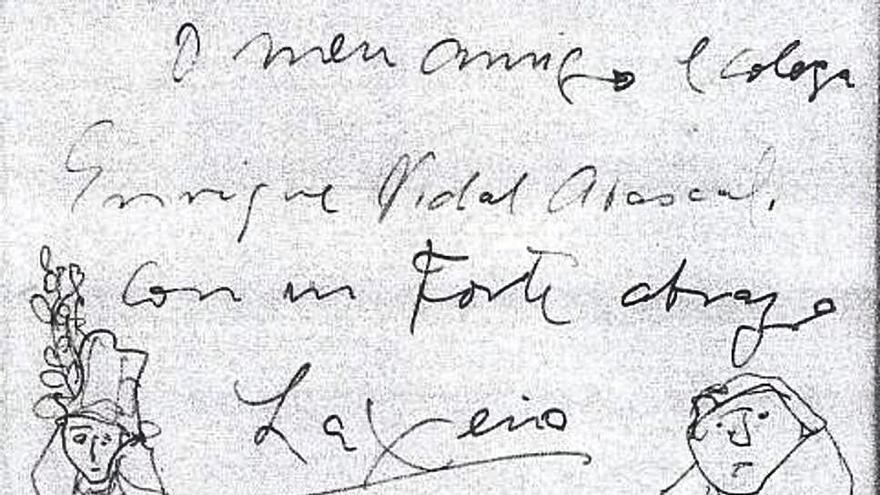 O meu amigo e colega
Enrique Vidal Abascal.
con un forte abrazo
Laxeiro